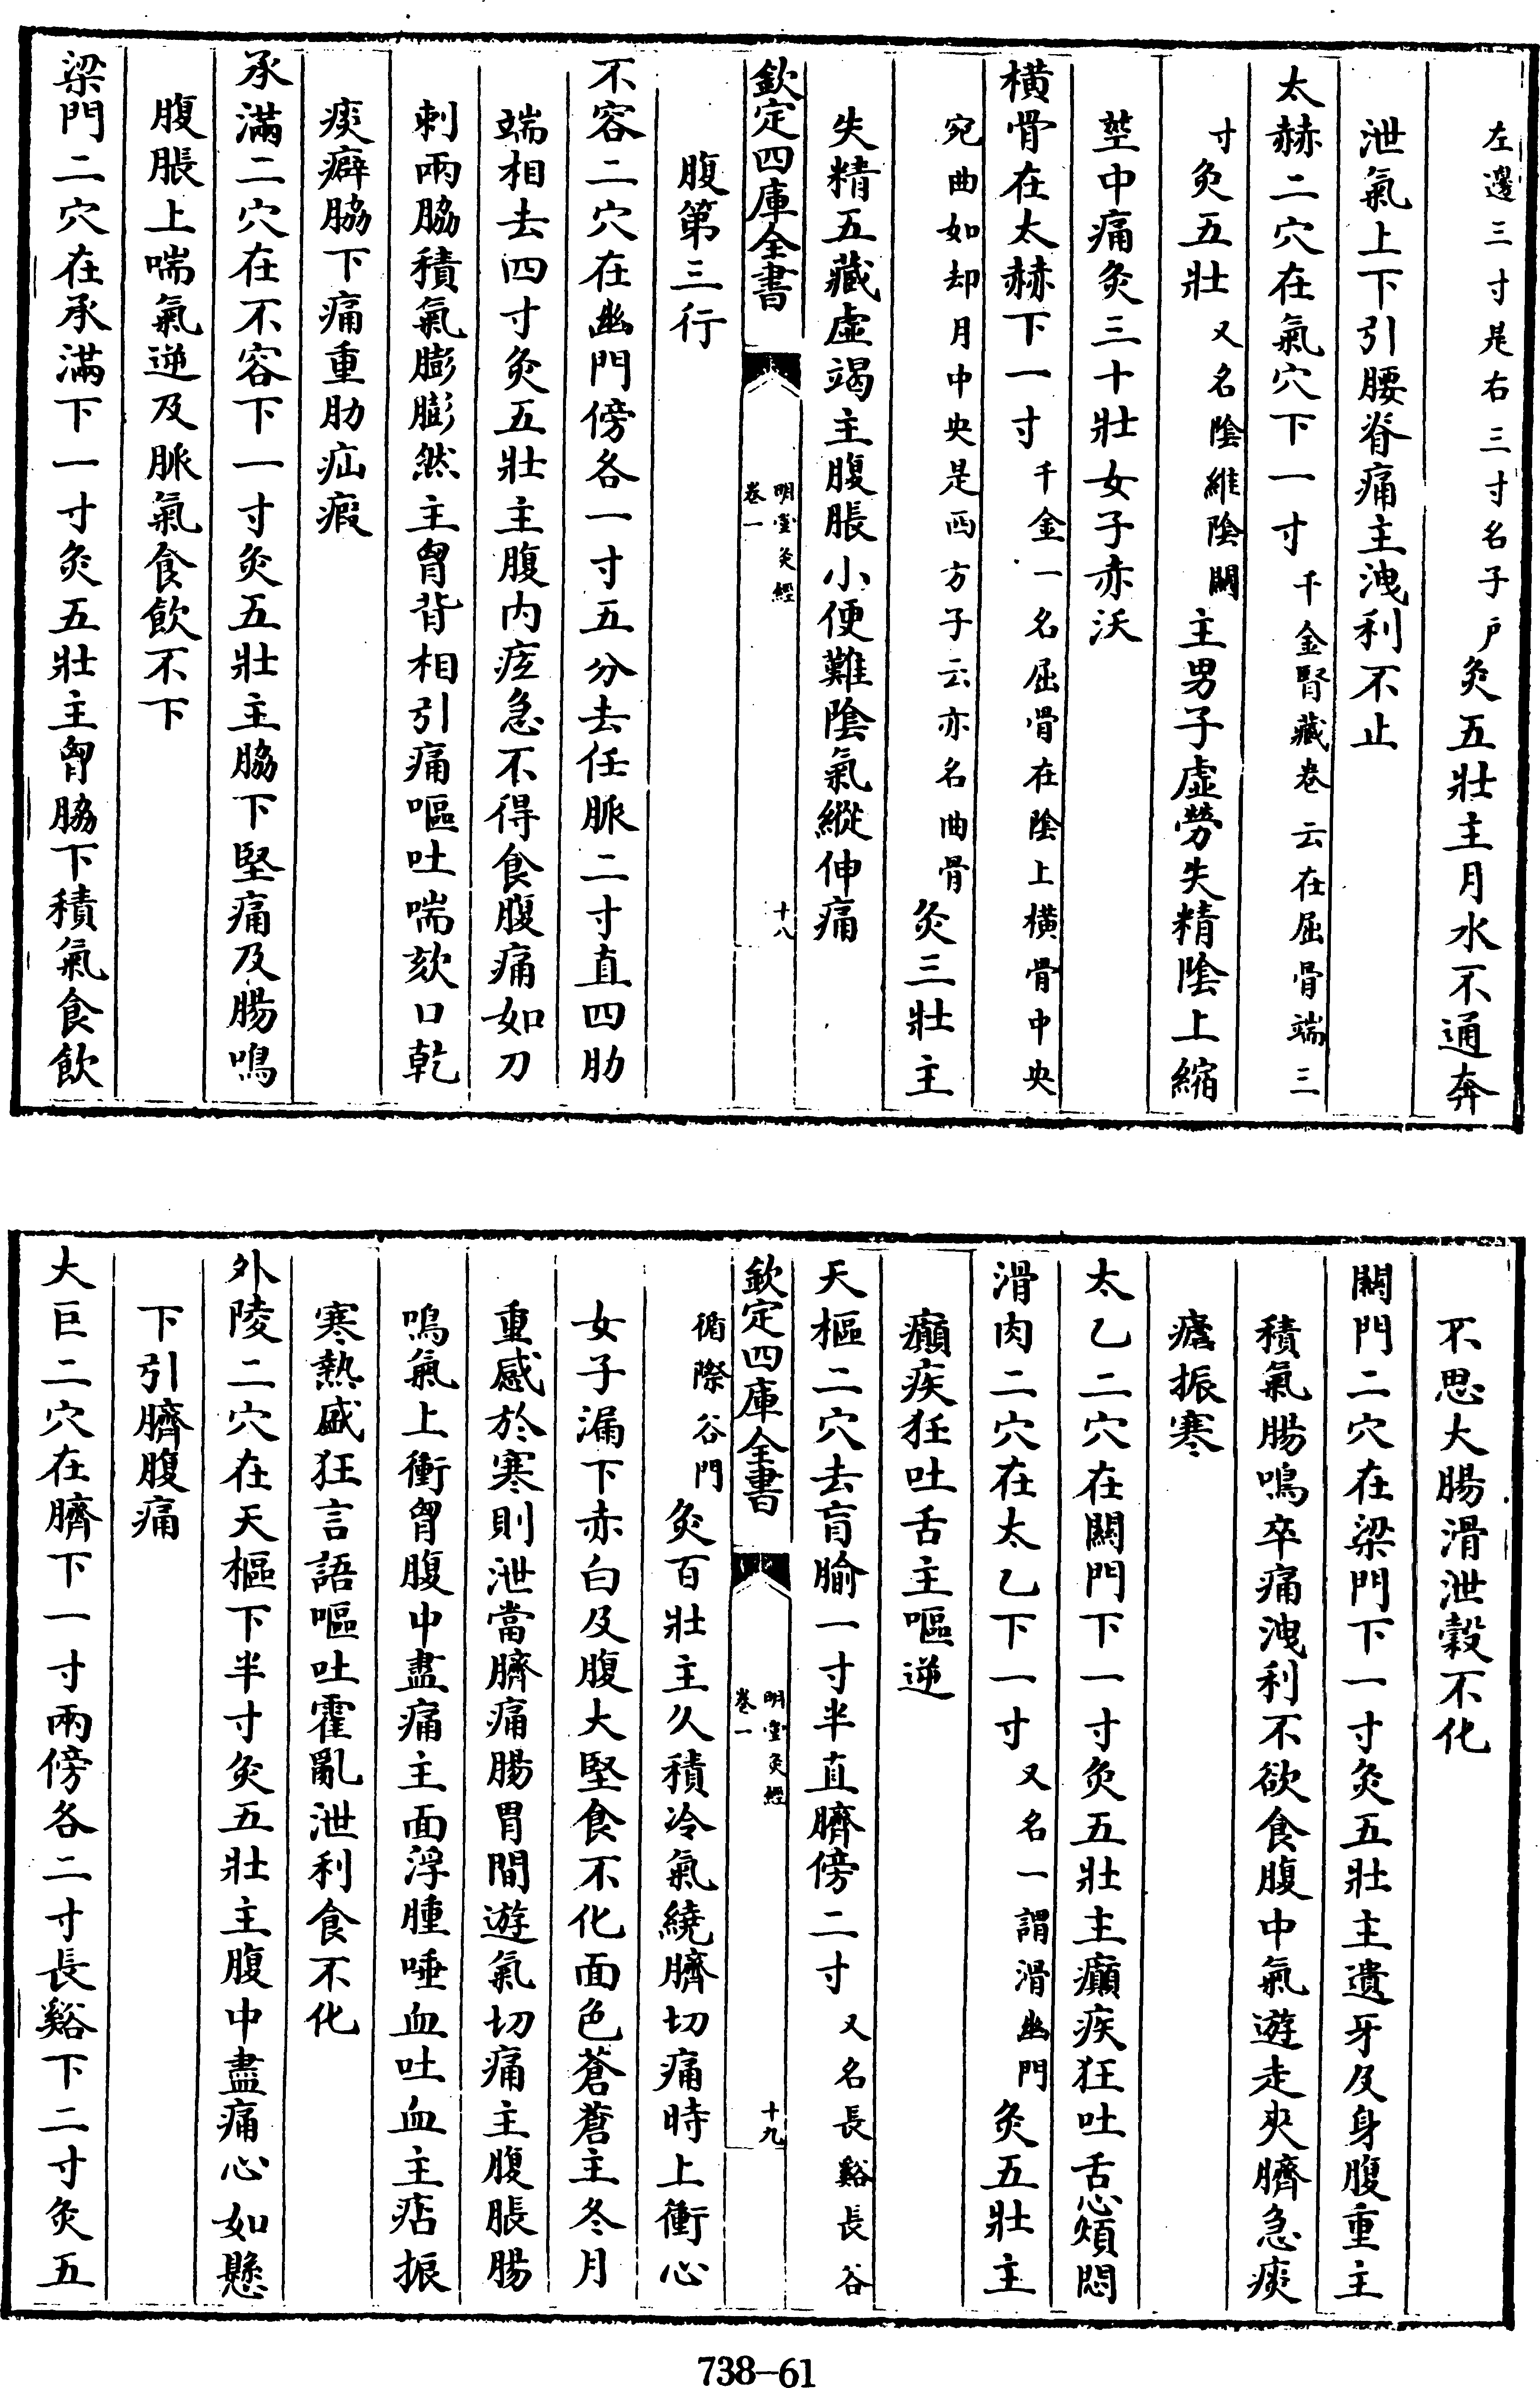 左邊三寸是右三寸名子戶灸五壯主月水不通奔
泄氣上下引腰脊痛主洩利不止
太赫二穴在氣穴下一寸千金腎藏卷云在屈骨端三
寸灸五壯又名陰維陰關主男子虛勞失精陰上縮
莖中痛灸三十壯女子赤沃
橫骨在太赫下一寸千金一名屈骨在陰上橫骨中央
宛曲如却月中央是西方子云亦名曲骨灸三壯主
失精五藏虛竭主腹脹小便難陰氣縱伸痛
欽定四庫全書 明堂灸經 卷一 十八
腹第三行
不容二穴在幽門傍各一寸五分去任脈二寸直四肋
端相去四寸灸五壯主腹内痃急不得食腹痛如刀
刺兩脇積氣膨膨然主胷背相引痛嘔吐喘欬口乾
痰癖脇下痛重肋疝瘕
承滿二穴在不容下一寸灸五壯主脇下堅痛及腸鳴
腹脹上喘氣逆及脈氣食飲不下
梁門二穴在承滿下一寸灸五壯主胷脇下積氣食飲
不思大腸滑泄穀不化
關門二穴在梁門下一寸灸五壯主遺牙及身腹重主
積氣腸鳴卒痛洩利不欲食腹中氣遊走夾臍急痰
瘧振寒
太乙二穴在關門下一寸灸五壯主癲疾狂吐舌心煩悶
滑肉二穴在太乙下一寸又名一謂滑幽門灸五壯主
癲疾狂吐舌主嘔逆
天樞二穴去肓腧一寸半直臍傍二寸又名長谿長谷
循際谷門灸百壯主久積冷氣繞臍切痛時上衝心
女子漏下赤白及腹大堅食不化面色蒼蒼主冬月
重感於寒則泄當臍痛腸胃間遊氣切痛主腹脹腸
鳴氣上衝胷腹中盡痛主面浮腫唾血吐血主痁振
寒熱盛狂言語嘔吐霍亂泄利食不化
外陵二穴在天樞下半寸灸五壯主腹中盡痛心如懸
下引臍腹痛
大巨二穴在臍下一寸兩傍各二寸長谿下二寸灸五
欽定四庫全書 明堂灸經 卷一 十九
738-61